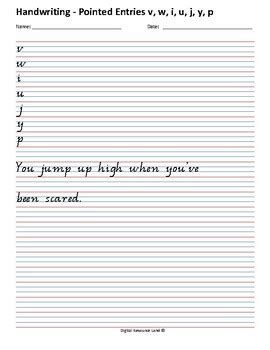 Handwriting - Pointed Entries v, w, i, u, j, y, p
Name: Date:
v
w
i
u
j
y
p
You jump up high when you've
been scared.
Digital Resource Land ©